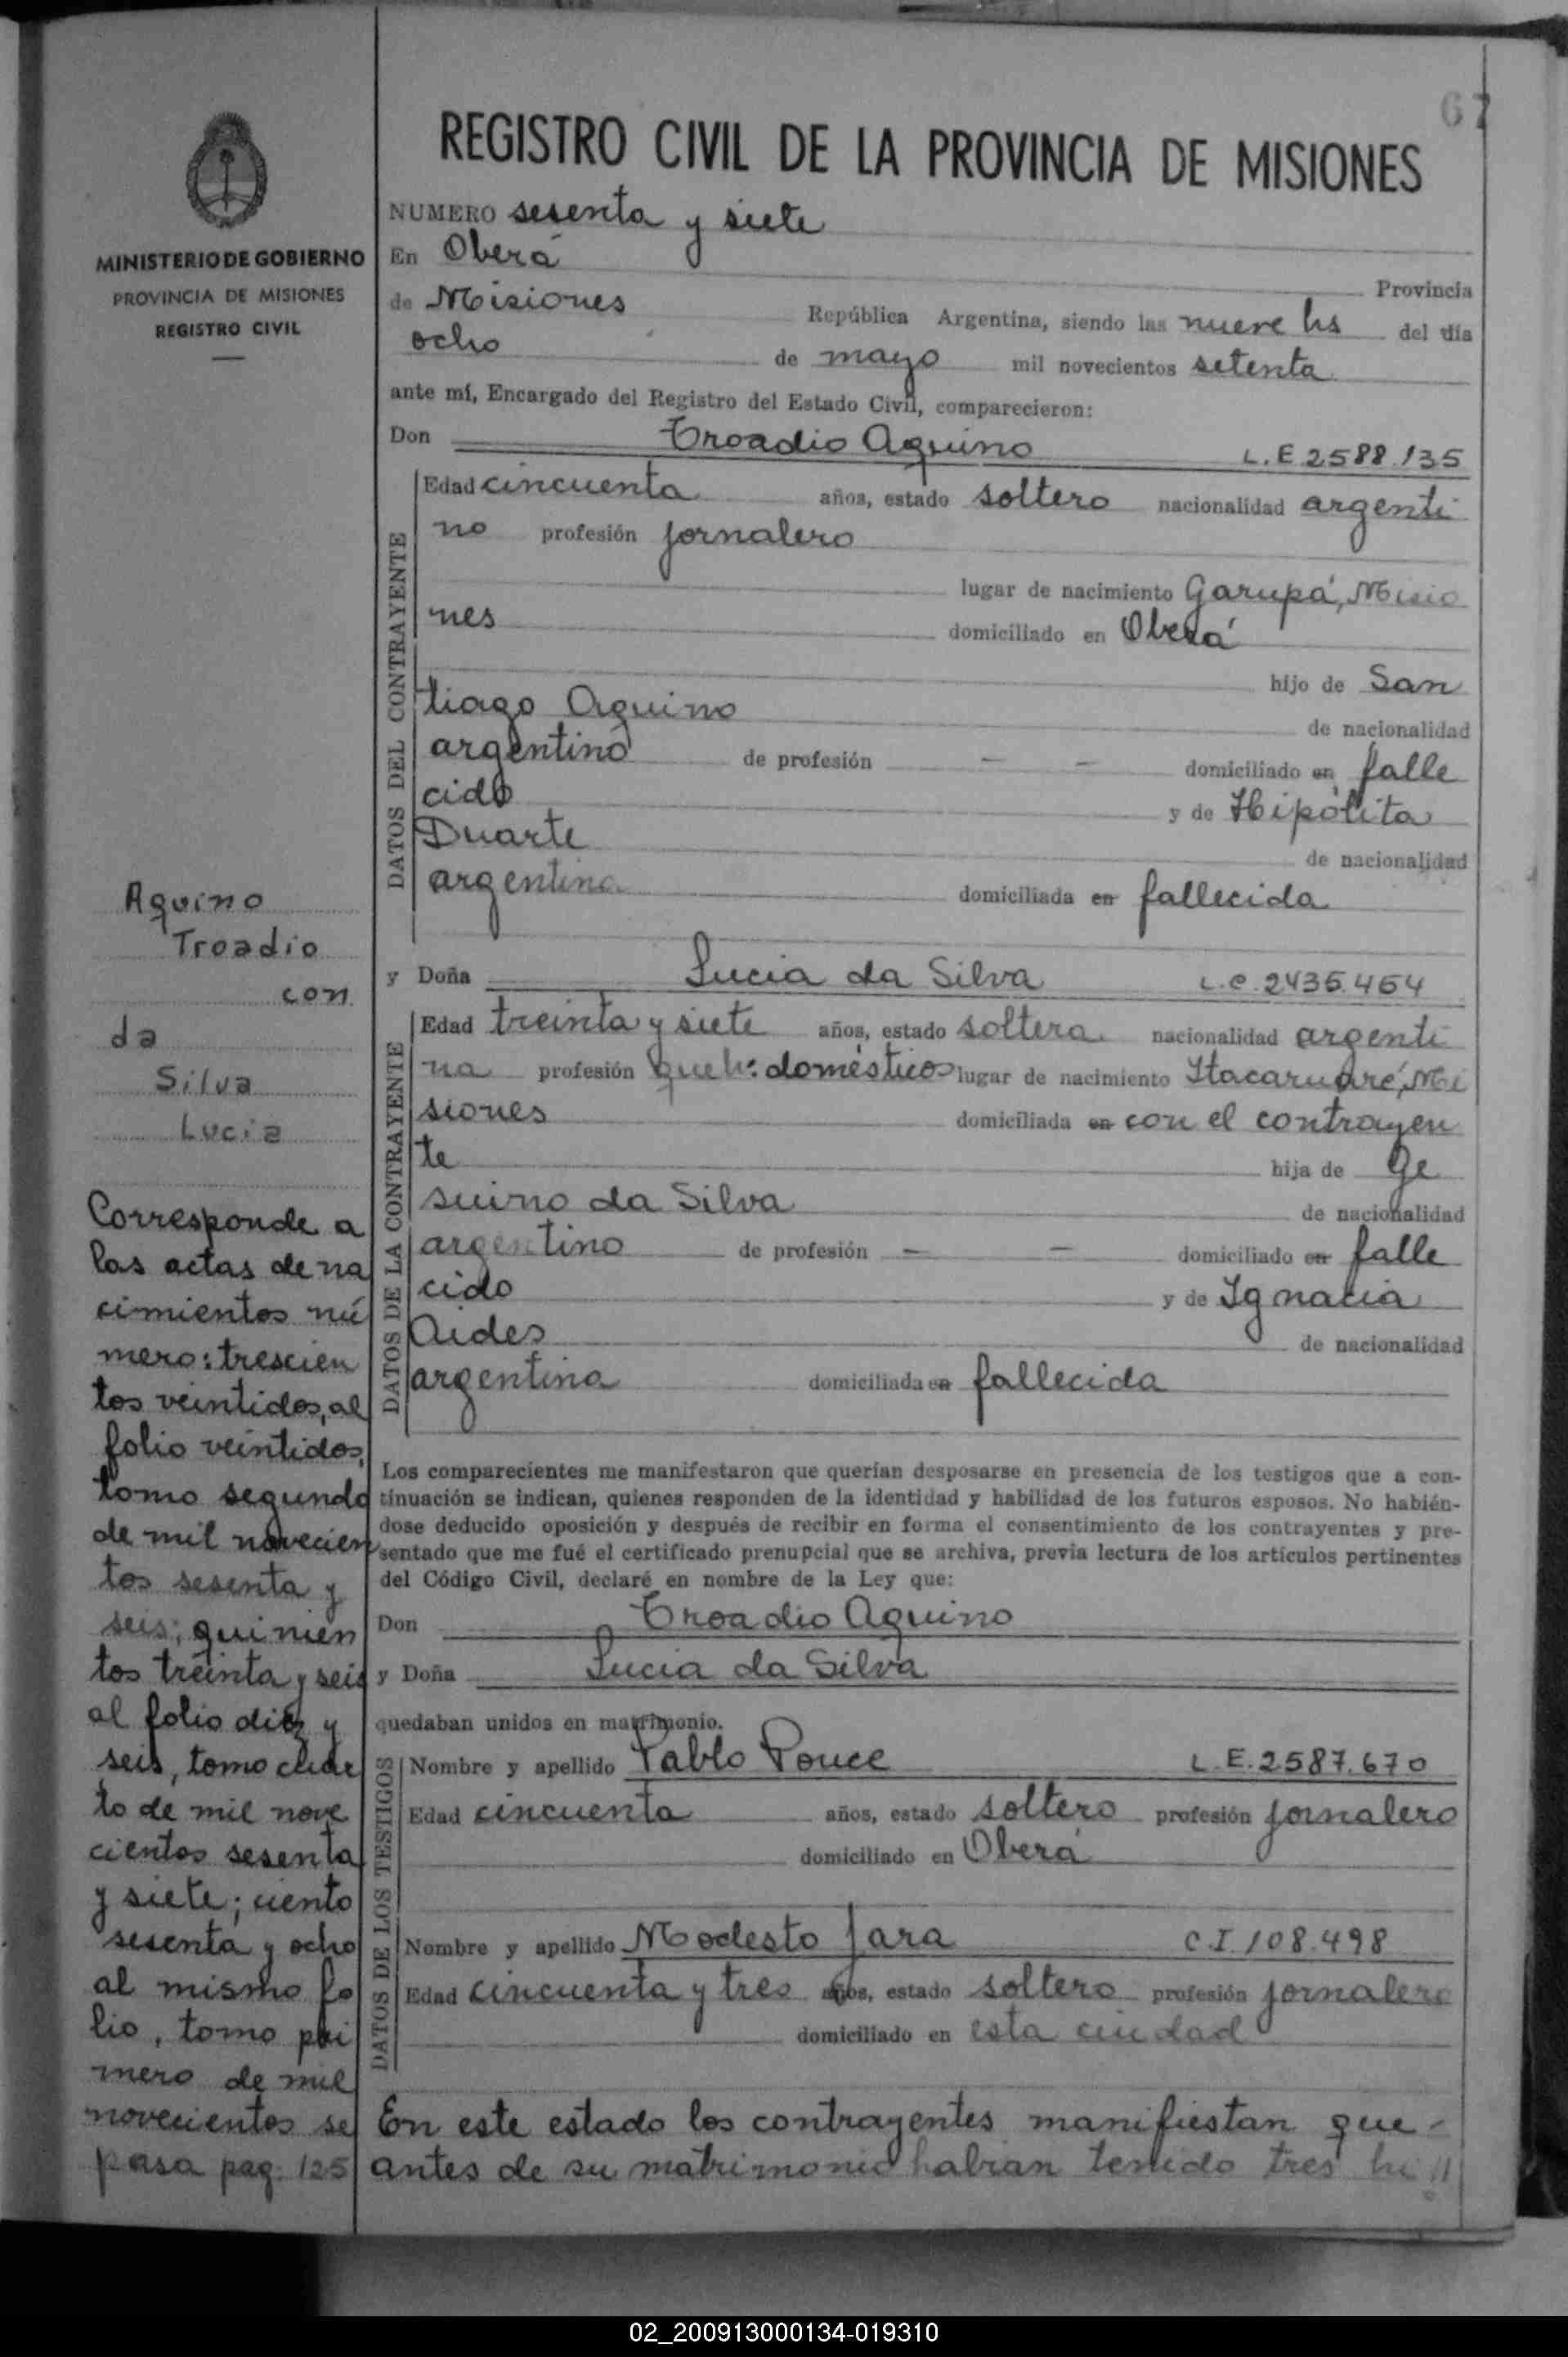 67
REGISTRO CIVIL DE LA PROVINCIA DE MISIONES
MINISTERIO DE GOBIERNO
PROVINCIA DE MISIONES
REGISTRO CIVIL
NUMERO sesenta y siete
En Oberá Provincia
de Misiones República Argentina, siendo las nueve hs del día
ocho de mayo mil novecientos setenta
ante mí, Encargado del Registro del Estado Civil, comparecieron:
Don Troadio Aquino L.E 2588.135
DATOS DEL CONTRAYENTE
Edad cincuenta años, estado soltero nacionalidad argenti
no profesión jornalero
lugar de nacimiento Garupá, Misio
nes domiciliado en Oberá
hijo de San
tiago Aquino de nacionalidad
argentino de profesión — — domiciliado en falle
cido y de Hipólita
Duarte de nacionalidad
argentina domiciliada en fallecida
y Doña Lucia da Silva L.C. 2435.454
DATOS DE LA CONTRAYENTE
Edad treinta y siete años, estado soltera nacionalidad argenti
na profesión queh: domésticos lugar de nacimiento Itacaruaré, Mi
siones domiciliada en con el contrayen
te hija de Ge
suino da Silva de nacionalidad
argentino de profesión — — domiciliado en falle
cido y de Ignacia
Aides de nacionalidad
argentina domiciliada en fallecida
Los comparecientes me manifestaron que querían desposarse en presencia de los testigos que a con-
tinuación se indican, quienes responden de la identidad y habilidad de los futuros esposos. No habién-
dose deducido oposición y después de recibir en forma el consentimiento de los contrayentes y pre-
sentado que me fué el certificado prenupcial que se archiva, previa lectura de los artículos pertinentes
del Código Civil, declaré en nombre de la Ley que:
Don Troadio Aquino
y Doña Lucia da Silva
quedaban unidos en matrimonio.
DATOS DE LOS TESTIGOS
Nombre y apellido Pablo Ponce L.E. 2.587.670
Edad cincuenta años, estado soltero profesión jornalero
domiciliado en Oberá
Nombre y apellido Modesto Jara C.I. 108.498
Edad cincuenta y tres años, estado soltero profesión jornalero
domiciliado en esta ciudad
En este estado los contrayentes manifiestan que -
antes de su matrimonio habian tenido tres hi
Aquino
Troadio
con
da
Silva
Lucia
Corresponde a
las actas de na
cimientos nú
mero: trescien
tos veintidos, al
folio veintidos,
tomo segundo
de mil novecien
tos sesenta y
seis; quinien
tos treinta y seis
al folio diez y
seis, tomo cuar
to de mil nove
cientos sesenta
y siete; ciento
sesenta y ocho
al mismo fo
lio, tomo pri
mero de mil
novecientos se
pasa pag: 125
02_200913000134-019310